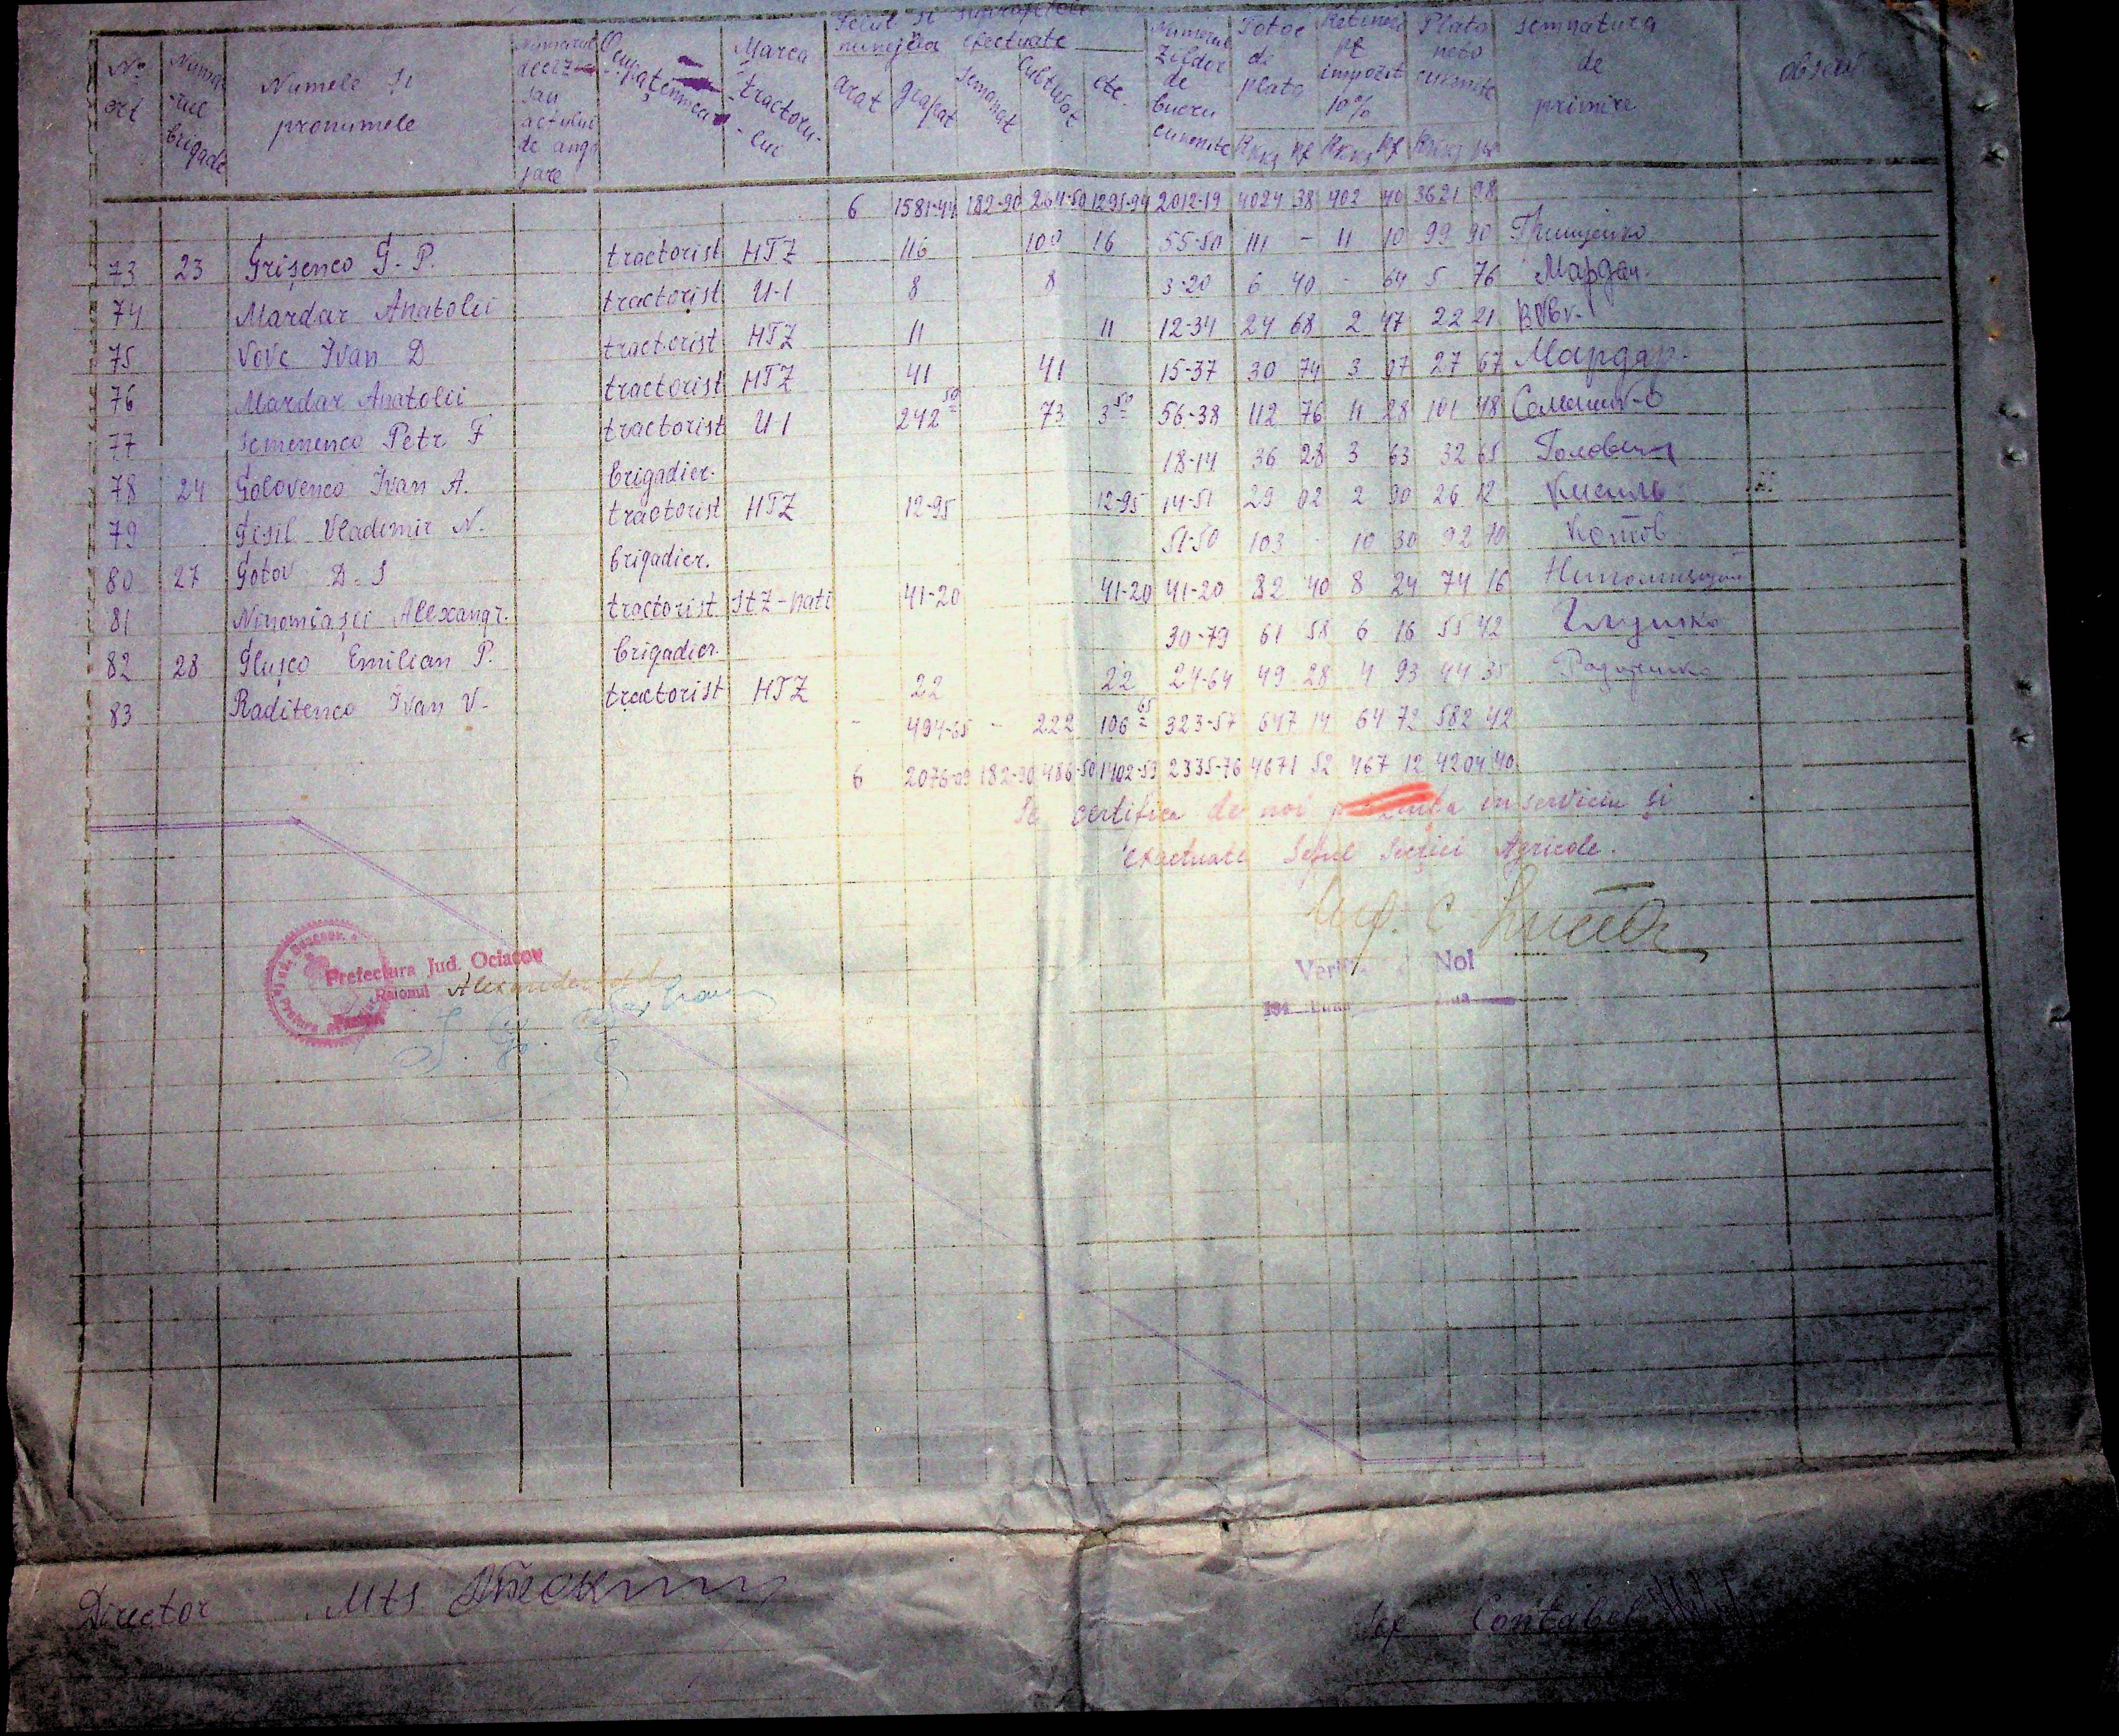 No ort Numărul brigade Numele și pronumele Numărul deciz sau actului de anga jare Ocupațiunea Marca tractoru-lui arat grapat semanat cultivat etc. Numerul Zilelor de lucru cuvenite Total de plata Retineri pt impozit 10% Plata neto cuvenite semnatura de primire observ.
RKKS pf RKKS pf RKKS pf
6 1581-44 182-90 264-50 1295-94 2012-19 4024 38 402 40 3621 98
73 23 Grișenco G. P. tractorist HTZ 116 100 16 55-50 111 - 11 10 99 90 Грищенко
74 Mardar Anatolii tractorist U-1 8 8 3-20 6 40 - 64 5 76 Мардар.
75 Vovc Ivan D tractorist HTZ 11 11 12-34 24 68 2 47 22 21
76 Mardar Anatolii tractorist HTZ 41 41 15-37 30 74 3 07 27 67 Мардар.
77 Semenenco Petr F tractorist U-1 242 50 73 3 50 56-38 112 76 11 28 101 48
78 24 Golovenco Ivan A. brigadier. 18-14 36 28 3 63 32 65
79 Gesil Vladimir N. tractorist HTZ 12-95 12-95 14-51 29 02 2 90 26 12
80 27 Gotov D. I brigadier. 51-50 103 - 10 30 92 70 Котов
81 Ninomiașii Alexangr. tractorist StZ-nati 41-20 41-20 41-20 82 40 8 24 74 16
82 28 Glușco Emilian P. brigadier. 30-79 61 58 6 16 55 42 Глушко
83 Raditenco Ivan V. tractorist HTZ 22 22 24-64 49 28 4 93 44 35
- 494-65 - 222 106 65 323-57 647 14 64 72 582 42
6 2076-09 182-90 486-50 1402-59 2335-76 4671 52 467 12 4204 40
Se certifica de noi in serviciu și
exactuati Șeful Secției Agricole.
Ing. C
Prefectura Jud. Ociacov
Raionul
Verif Noi
194 Luna Ziua
Director MtS
Șef Contabel